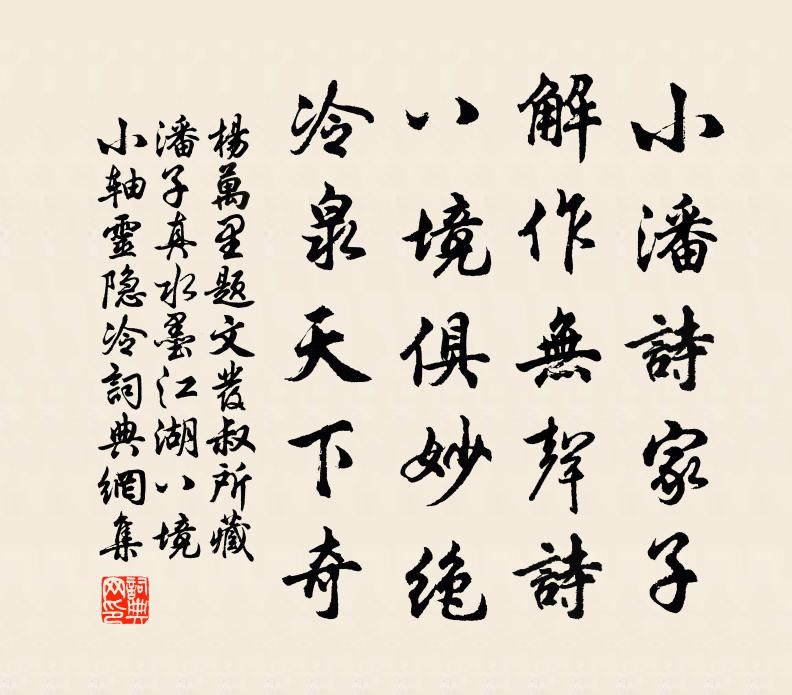 小潘詩家子
解作無聲詩
八境俱妙絶
冷泉天下奇
楊萬里題文發叔所藏
潘子真水墨江湖八境
小軸靈隐冷詞典網集
詞典
网印